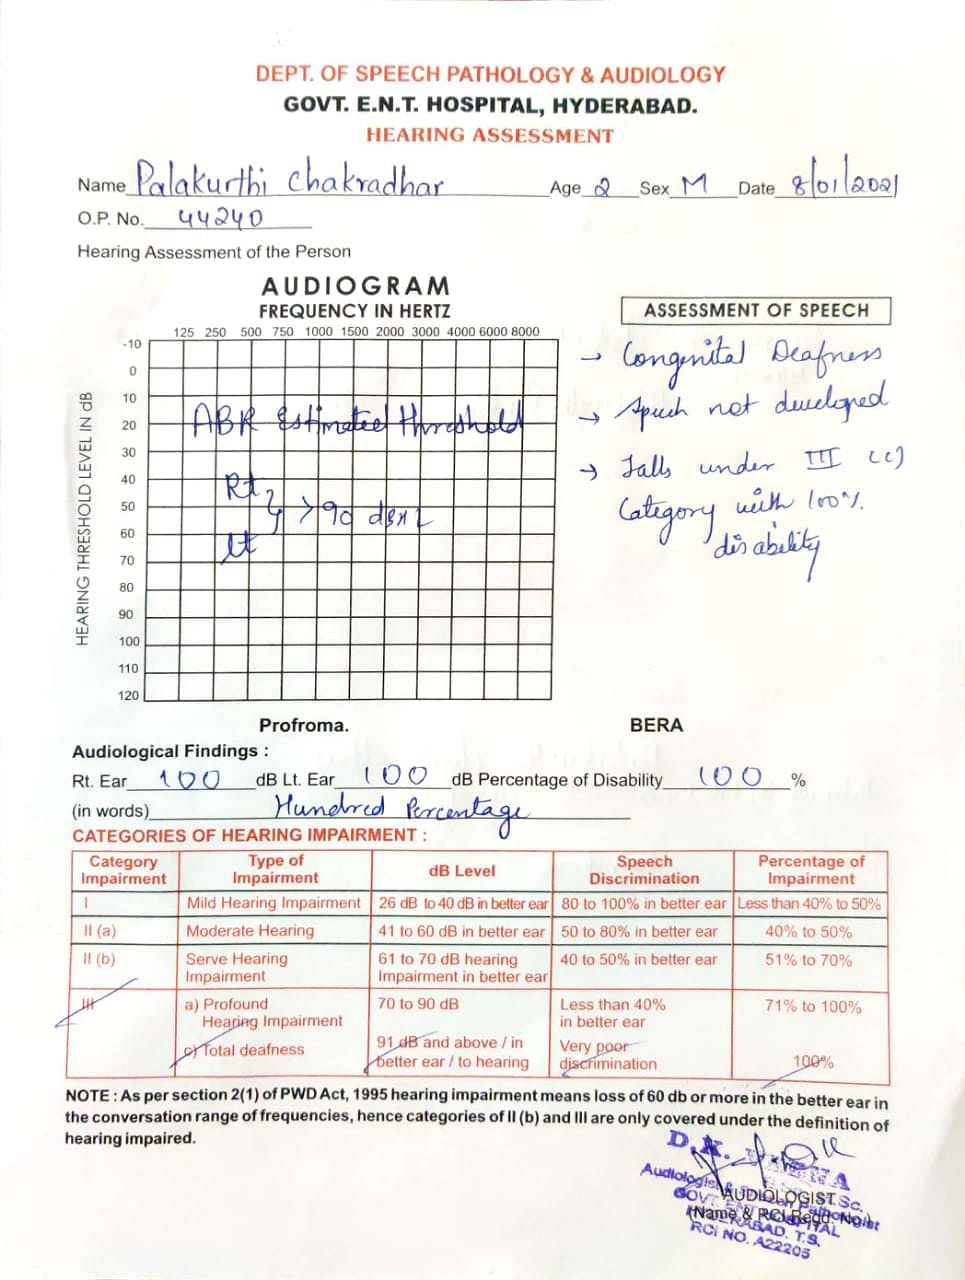 DEPT. OF SPEECH PATHOLOGY & AUDIOLOGY
GOVT. E.N.T. HOSPITAL, HYDERABAD.
HEARING ASSESSMENT
Name Palakurthi Chakradhar Age 2 Sex M Date 8/01/2021
O.P. No. 44240
Hearing Assessment of the Person
AUDIOGRAM
FREQUENCY IN HERTZ
125 250 500 750 1000 1500 2000 3000 4000 6000 8000
HEARING THRESHOLD LEVEL IN dB
-10
0
10
20
30
40
50
60
70
80
90
100
110
120
ABR Estimated Threshold
Rt
> 90 dBnHL
Lt
ASSESSMENT OF SPEECH
→ Congenital Deafness
→ Speech not developed
→ Falls under III (c)
Category with 100%
disability
Profroma. BERA
Audiological Findings :
Rt. Ear 100 dB Lt. Ear 100 dB Percentage of Disability 100 %
(in words) Hundred Percentage
CATEGORIES OF HEARING IMPAIRMENT :
Category Impairment Type of Impairment dB Level Speech Discrimination Percentage of Impairment
I Mild Hearing Impairment 26 dB to 40 dB in better ear 80 to 100% in better ear Less than 40% to 50%
II (a) Moderate Hearing 41 to 60 dB in better ear 50 to 80% in better ear 40% to 50%
II (b) Serve Hearing Impairment 61 to 70 dB hearing Impairment in better ear 40 to 50% in better ear 51% to 70%
III a) Profound Hearing Impairment 70 to 90 dB Less than 40% in better ear 71% to 100%
c) Total deafness 91 dB and above / in better ear / to hearing Very poor discrimination 100%
NOTE : As per section 2(1) of PWD Act, 1995 hearing impairment means loss of 60 db or more in the better ear in
the conversation range of frequencies, hence categories of II (b) and III are only covered under the definition of
hearing impaired.
D.K.
Audiologist & Speech Pathologist
AUDIOLOGIST
(Name & RCI Regd. No.)
GOVT. ENT HOSPITAL
HYDERABAD. T.S.
RCI NO. A22205